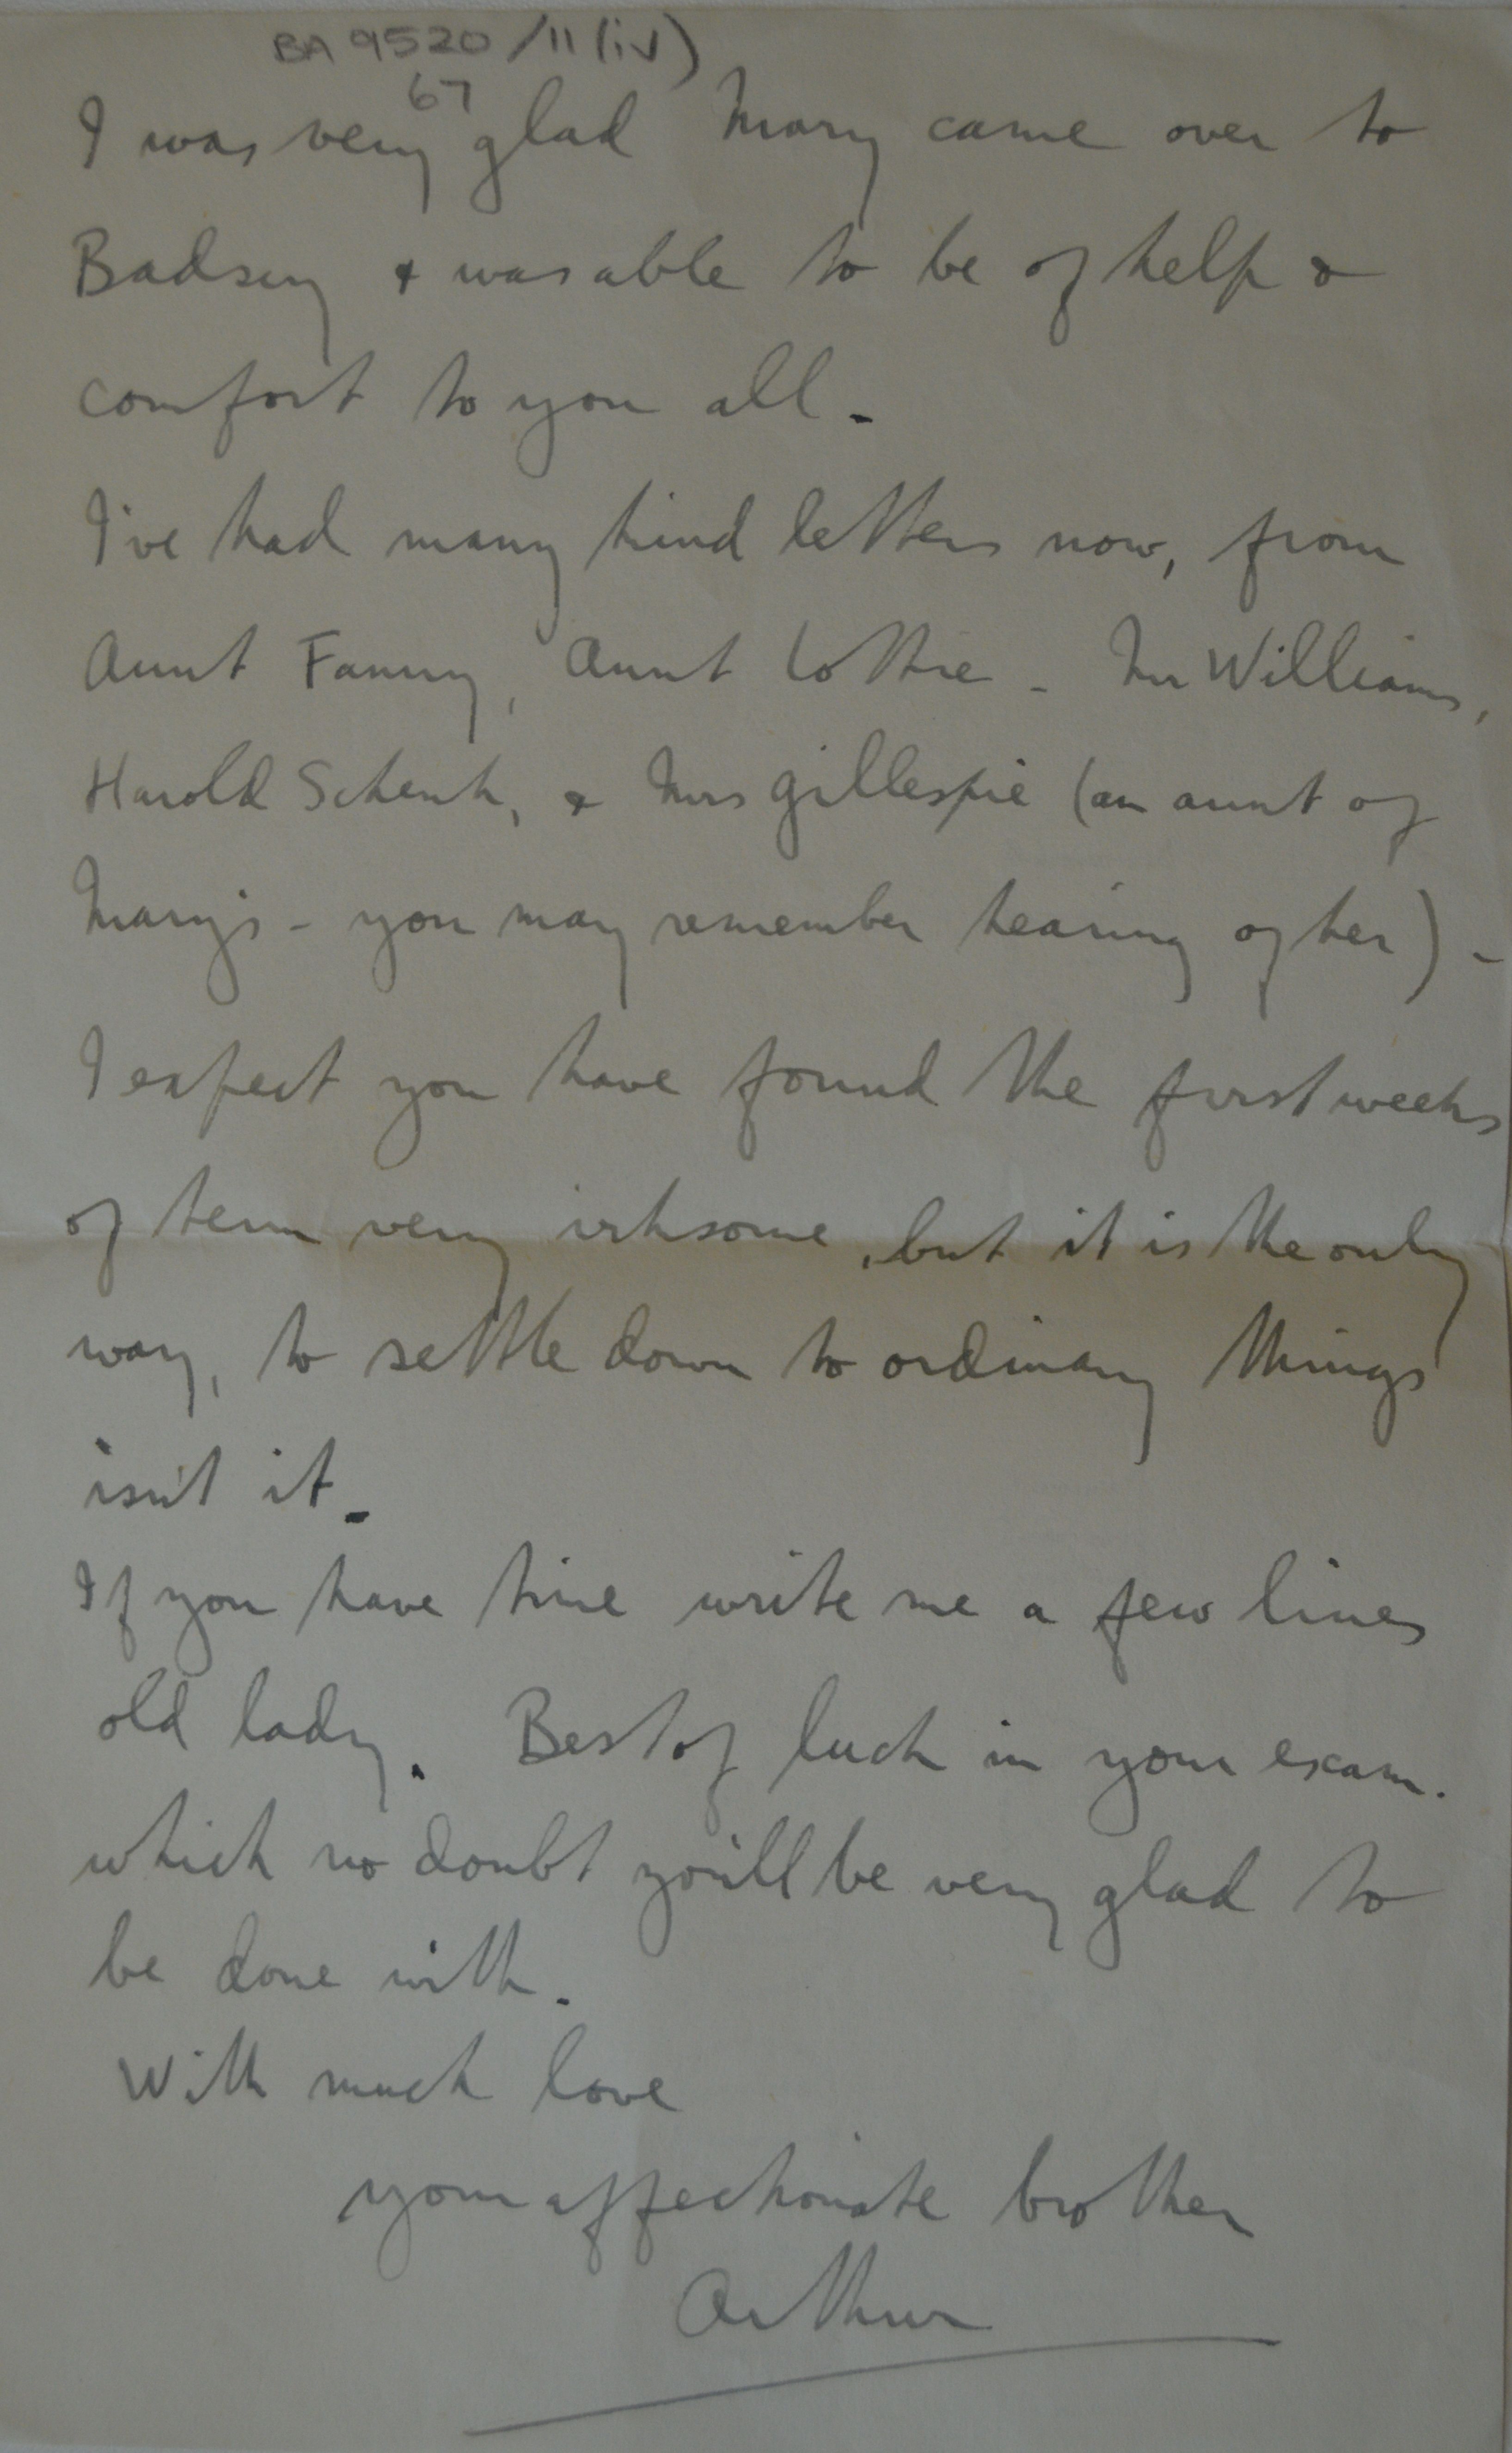 BA 9520/11(iv)
67
I was very glad Mary came over to
Badsey & was able to be of help &
comfort to you all.
I've had many kind letters now, from
Aunt Fanny, Aunt Lottie - Mr Williams,
Harold Schenk, & Mrs Gillespie (an aunt of
Mary's - you may remember hearing of her) -
I expect you have found the first weeks
of term very irksome, but it is the only
way, to settle down to ordinary things
isn't it.
If you have time write me a few lines
old lady. Best of luck in your exam.
which no doubt you'll be very glad to
be done with.
With much love
your affectionate brother
Arthur